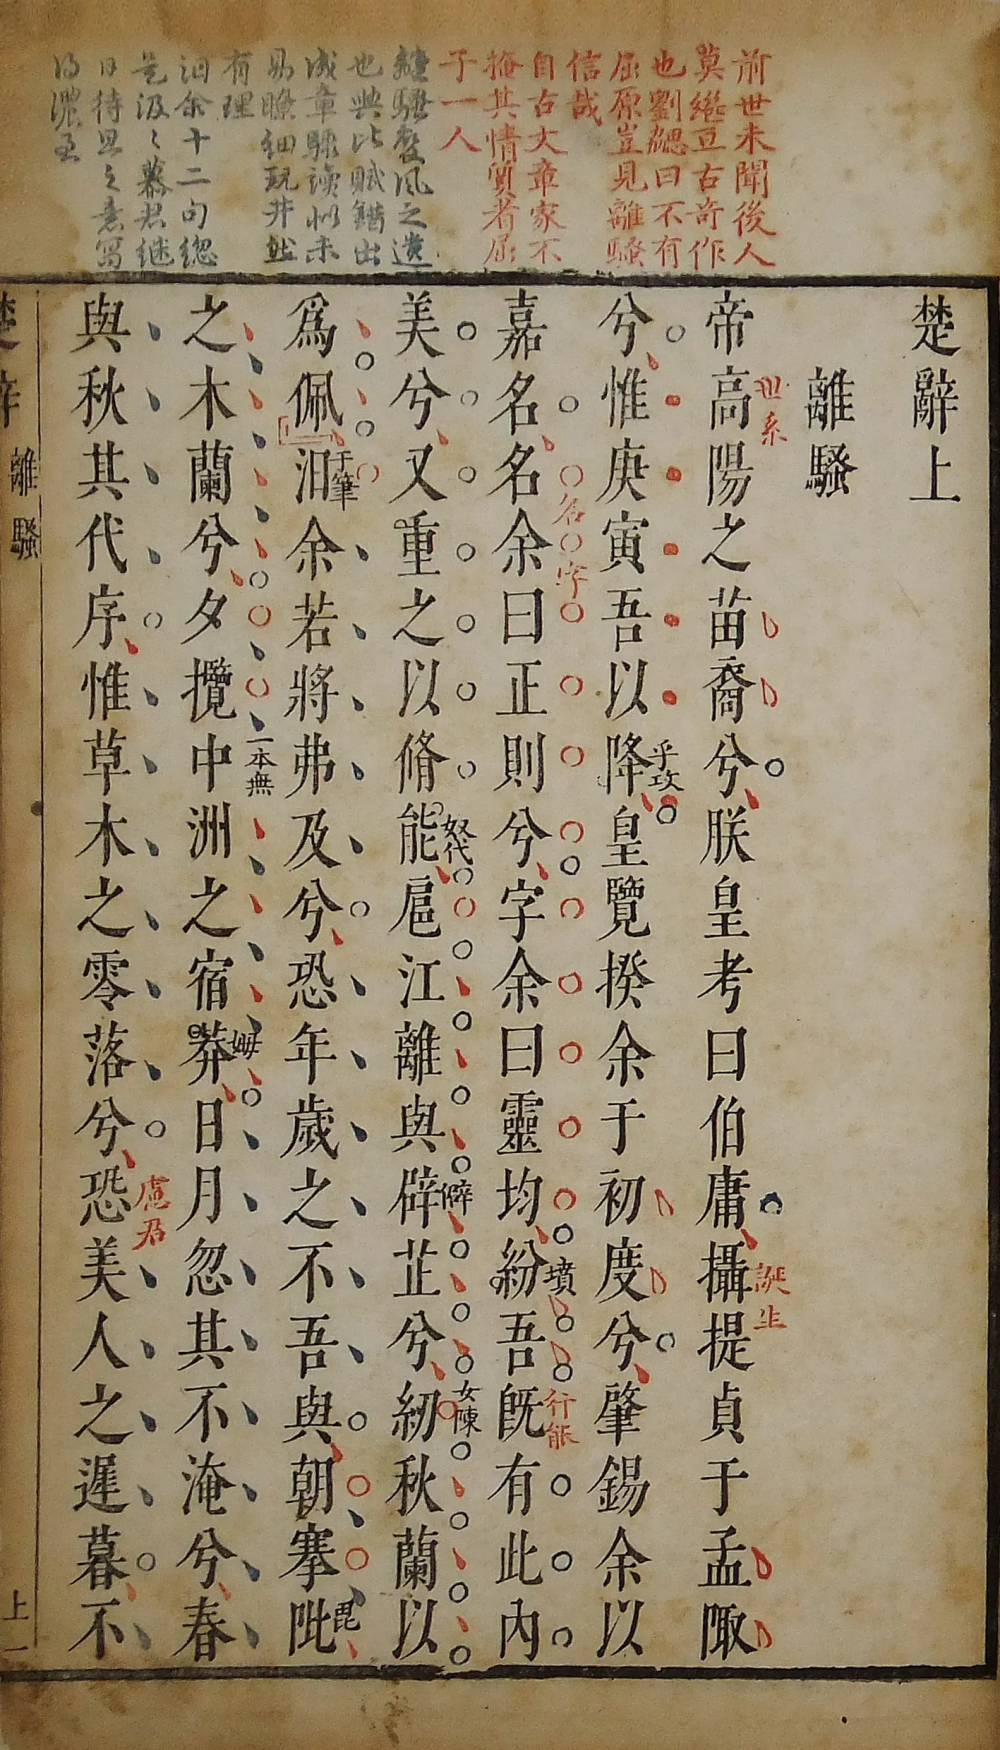 前世未聞後人
莫繼亘古奇作
也劉勰曰不有
屈原豈見離騷
信哉
自古大章家不
掩其情質者屈
子一人
離騷變風之遺
也興比賦錯出
成章驟讀似未
易瞭細玩井然
有理
汩余十二句總
是汲汲慕君繼
日待旦之意寫
得濃至
楚辭上
離騷
帝高陽之苗裔兮朕皇考曰伯庸攝提貞于孟陬
世系
誕生
兮惟庚寅吾以降皇覽揆余于初度兮肇錫余以
乎攻
嘉名名余曰正則兮字余曰靈均紛吾旣有此內
名
字
墳
行能
美兮又重之以脩能扈江離與辟芷兮紉秋蘭以
怒代
僻
女陳
爲佩汨余若將弗及兮恐年歲之不吾與朝搴阰
于筆
毘
之木蘭兮夕攬中洲之宿莽日月忽其不淹兮春
一本無
姆
與秋其代序惟草木之零落兮恐美人之遲暮不
慮君
楚辭
離騷
上
一